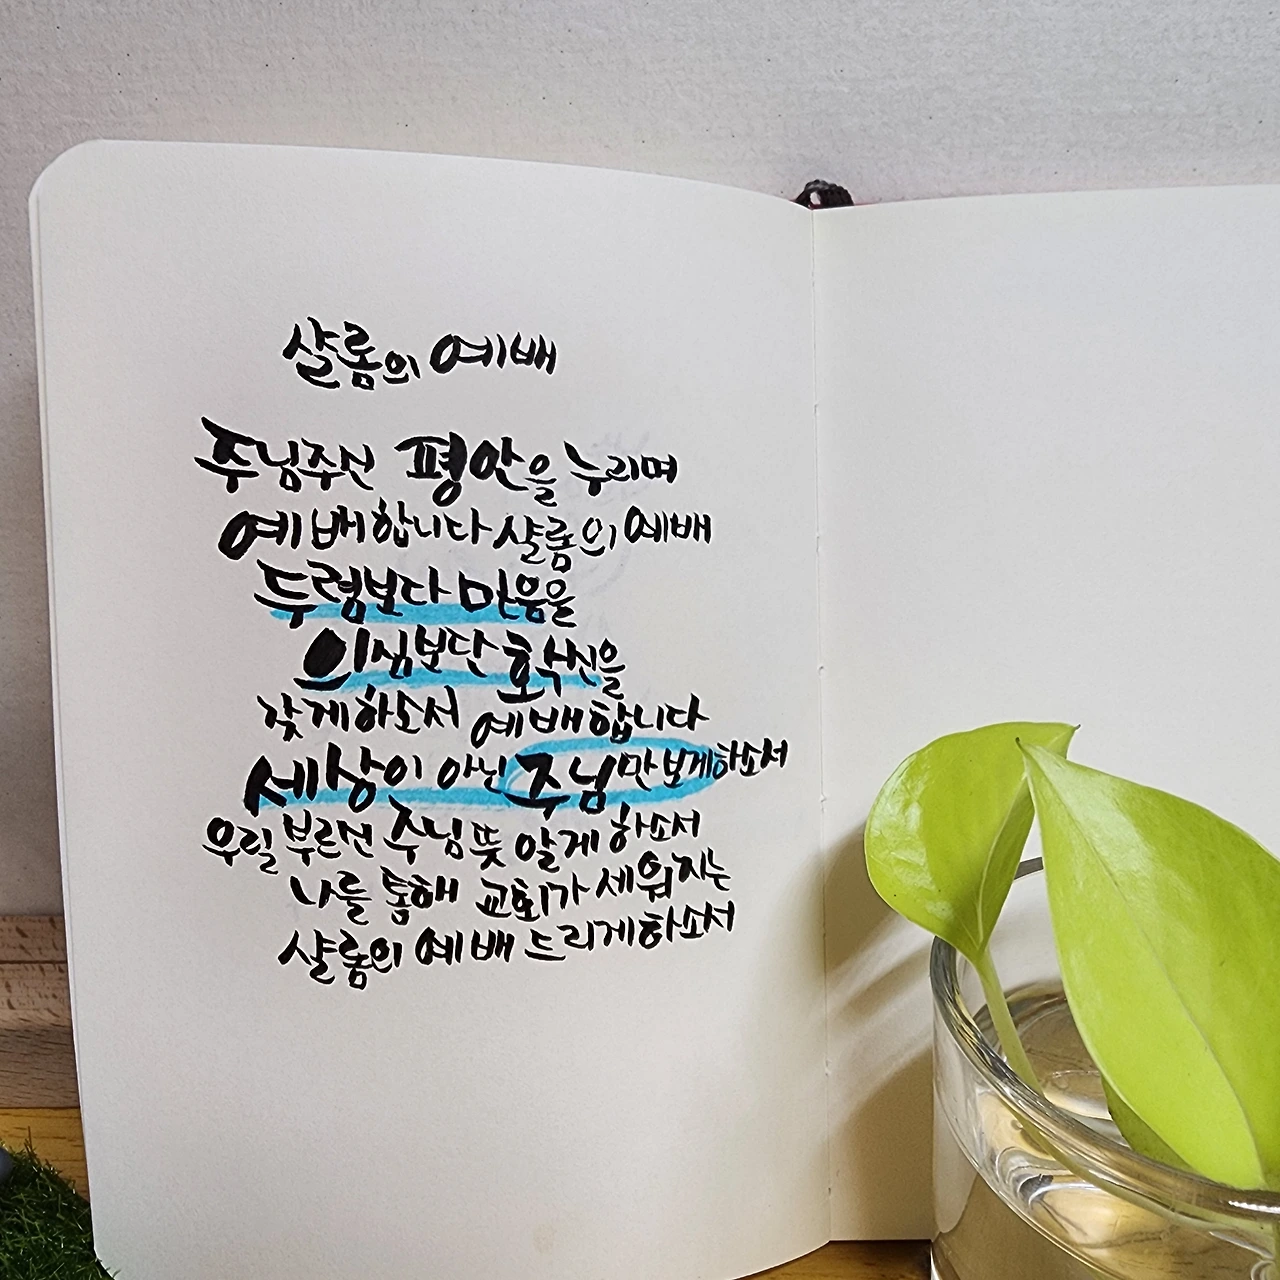 샬롬의 예배
주님주신 평안을 누리며
예배합니다 샬롬의 예배
두렴보다 마음을
의심보단 확신을
갖게하소서 예배합니다
세상이 아닌 주님만 보게하소서
우릴 부르신 주님 뜻 알게 하소서
나를 통해 교회가 세워지는
샬롬의 예배 드리게하소서